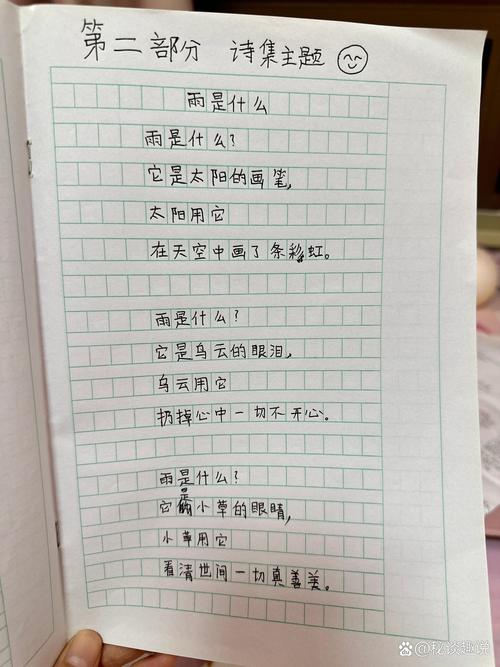 第二部分 诗集主题
雨是什么
雨是什么?
它是太阳的画笔,
太阳用它
在天空中画了条彩虹。
雨是什么?
它是乌云的眼泪,
乌云用它
扔掉心中一切不开心。
雨是什么?
它是小草的眼睛,
小草用它
看清世间一切真善美。
@秘谈趣说